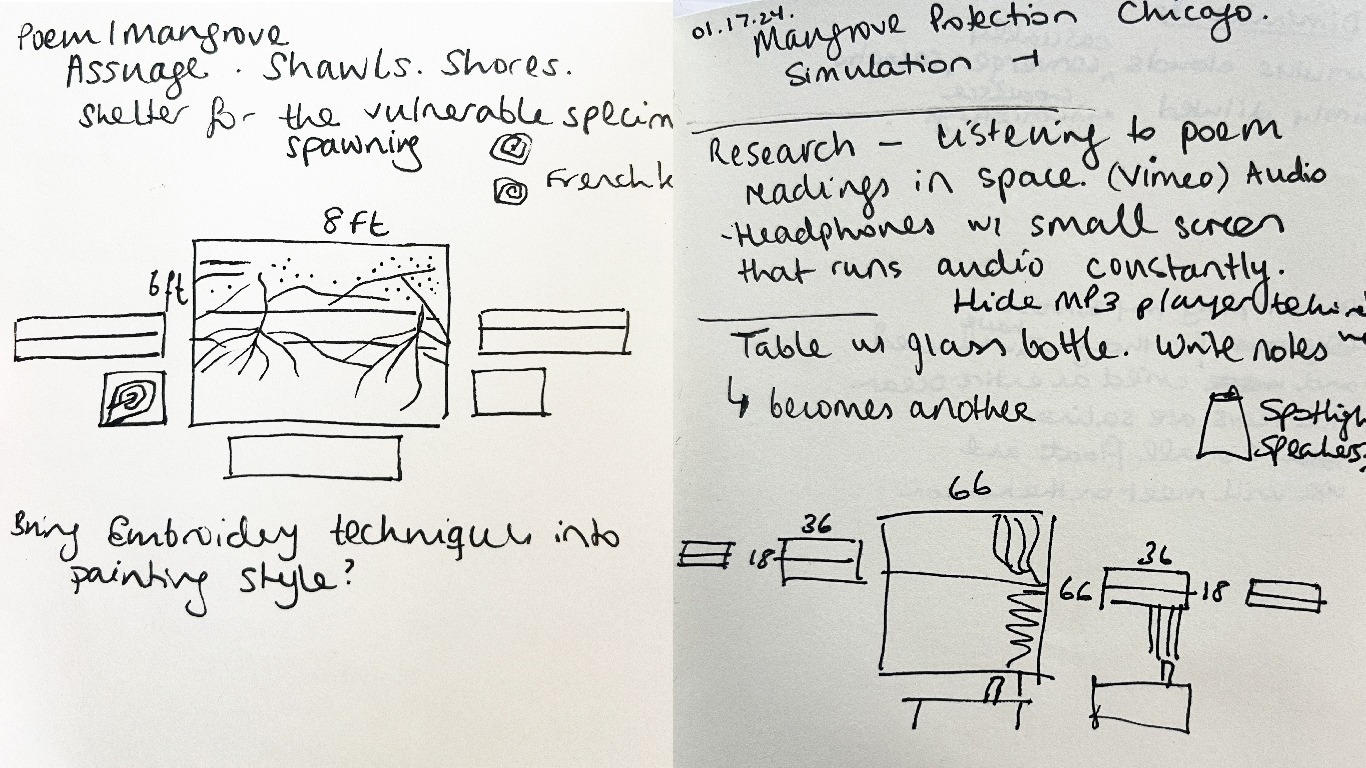 Poem/Mangrove
Assuage. Shawls. Shores.
Shelter for the vulnerable specim
spawning
French k
8 ft
6 ft
Bring Embroidey techniques into
painting style?
01.17.24.
Mangrove Protection Chicago.
Simulation
Research - Listening to poem
readings in space. (Vimeo) Audio
- Headphones w/ small screen
that runs audio constantly.
Hide MP3 player behin
Table w glass bottle. Write notes
↳ becomes another
Spotligh
Speakers.
66
36
18
66
36
18